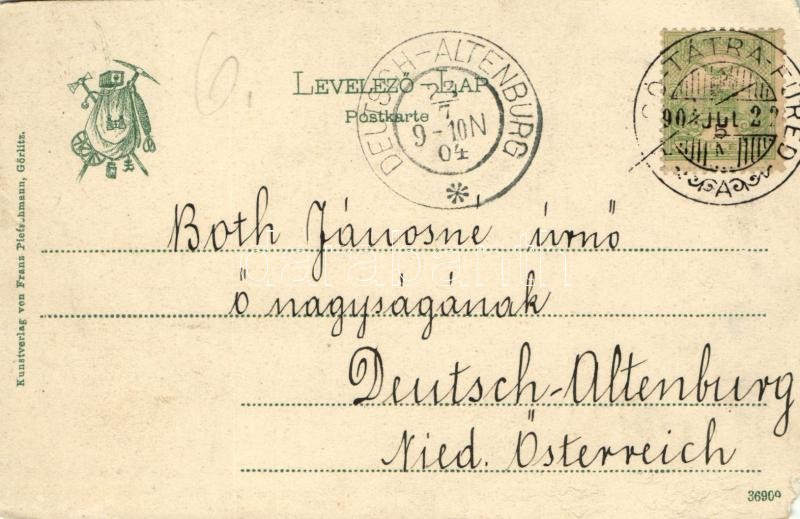 6.
LEVELEZŐ LAP
Postkarte
DEUTSCH-ALTENBURG
23
7
9-10N
04
Ó-TÁTRA-FÜRED
904 JUL 22
A
Both Jánosné úrnő
ő nagyságának
Deutsch-Altenburg
Nied. Österreich
Kunstverlag von Franz Görlitz.
darabanth
36900